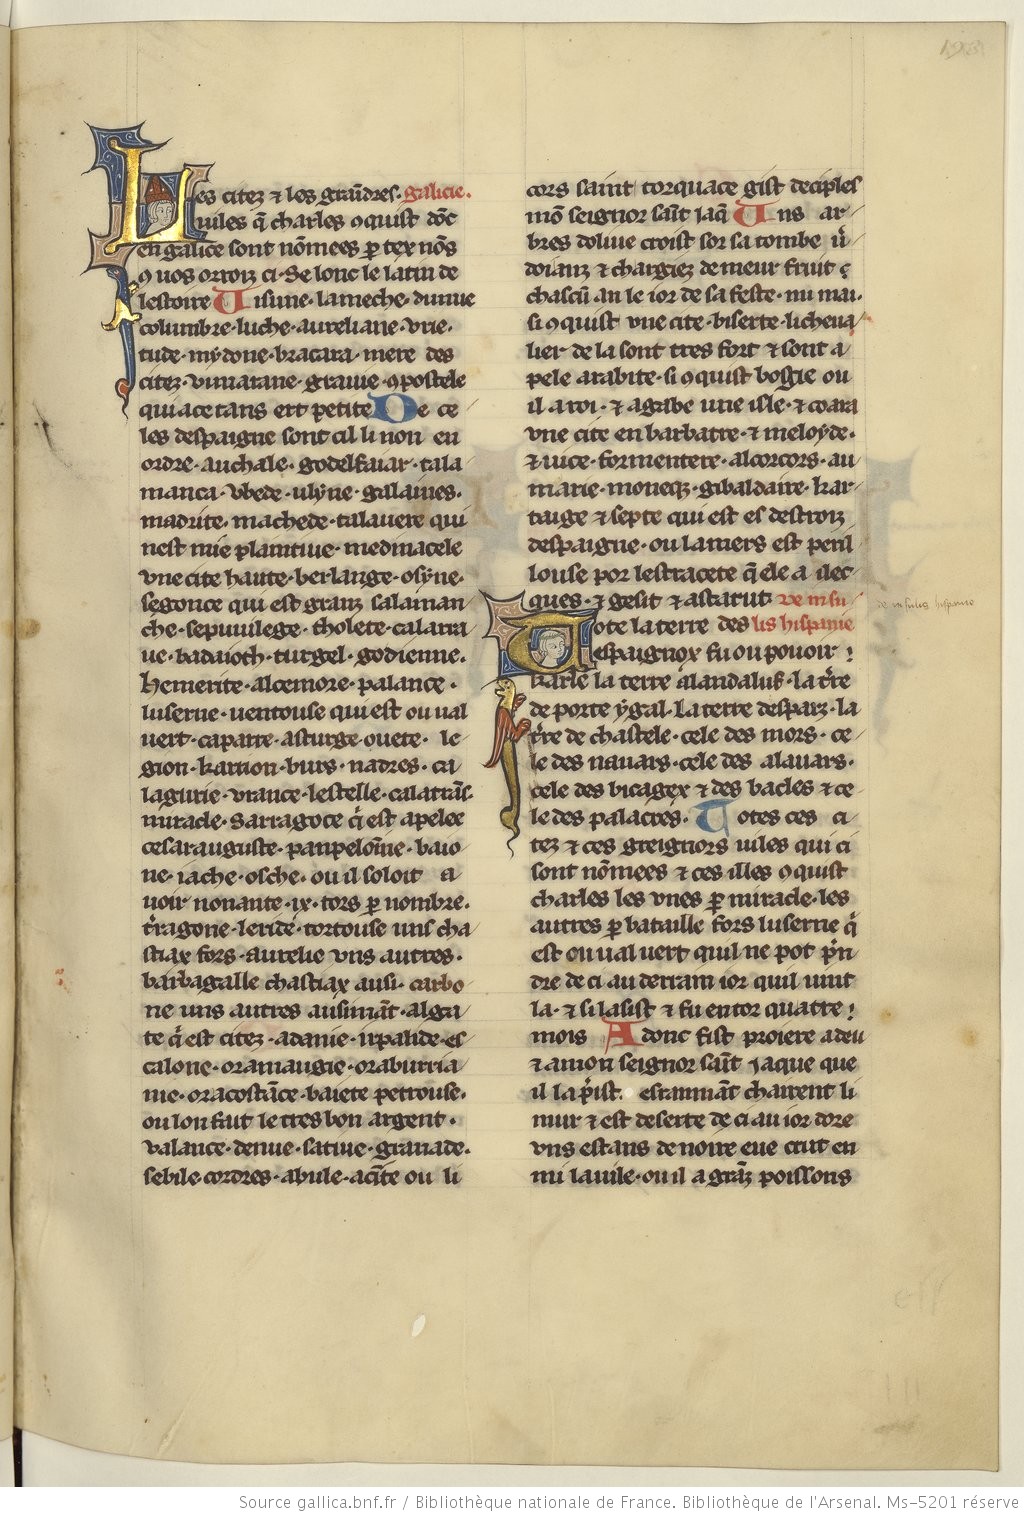 Les citez ⁊ les grãdres. galicie.
uiles q̃ charles ꝯquist dõc
en galice sont nõmees ꝑ tex nõs
ꝯ uos orroiz ci. Se lonc le latin de
lestoire Uisune. lameche. dunue
columbre. luche. aureliane. vrie.
tude. mydone. bracara. mere des
citez. vimarane. grauie. ꝯpostele
qui a ce tans ert petite De ce
les despaigne sont cil li non en
ordre. auchale. godelfaiar. tala
manca. vbede. ulyne. galaines.
madrite. machede. talauere qui
nest mie plaintiue. medinacele
vne cite haute. berlange. osyne.
segonce qui est granz salaman
che. sepuuilege. tholete. calatra
ue. badaioth. turgel. godienne.
hemerite. alcemore. palance.
luserne. uentouse qui est ou ual
uert. caparre. asturge. ouete. le
gion. karrion. burs. nadres. ca
lagurie. vrance. lestelle. calatrãs.
miracle. Sarragoce q̃ est apelee
cesarauguste. panpelone. baio
ne. iache. osche. ou il soloit a
uoir nonante. ix. tors ꝑ nombre.
t̃ragone. leride. tortouse uns cha
stiax fors. aurelie vns autres.
barbagalle chastiax ausi. carbo
ne uns autres ausimãt. algu
te q̃ est citez. adanie. irpalide. es
calone. oramaugie. oraburria
nie. oracostãce. baiete petrouse.
ou lon fait le tres bon argent.
valance. denue. satiue. granade.
sebile cordres. abule. acinte ou li
cors saint torquace gist deciples
mõ seignor sãt iaq̃ Uns ar
bres doliue croist sor sa tombe u
doianz ⁊ chargiez de meur fruit
chascũ an le ior de sa feste. mi mai.
si ꝯquist vne cite. biserte. li cheua
lier de la sont tres fort ⁊ sont a
pele arabite. si ꝯquist bosgie ou
il a roi. ⁊ agabe une isle. ⁊ coara
vne cite en barbarre. ⁊ meloyde.
⁊ iuice. formentere. alcorcors. au
marie. moneq;. gibaldaire. kar
taige ⁊ septe qui est es destroiz
despaigne. ou la mers est peril
louse por lestracete q̃ ele a ilec
ques. ⁊ gesir ⁊ astarut. De insu
Tote la terre des lis hispanie
espaignox fu ou pouoir
karle la terre alandaluf. la t̃re
de porte ygal. La terre desparz. la
t̃re de chastele. cele des mors. ce
le des nauars. cele des alauars.
cele des bicagex ⁊ des bacles ⁊ ce
le des palacres. Totes ces ci
tez ⁊ ces greignors uiles qui ci
sont nõmees ⁊ ces illes ꝯquist
charles les vnes ꝑ miracle. les
autres ꝑ bataille fors luserne q̃
est ou ual uert quil ne pot p̃n
dre de ci au derrain ior quil uint
la. ⁊ si lasist ⁊ fu entor quatre
mois Adonc fist proiere a deu
⁊ a mon seignor sãt jaque que
il la p̃ist. erranmãt chairent li
mur ⁊ est deserte de ci au ior dore
vns estans de noire eue crut en
mi la uile. ou il a grãz poissons
de insulis hispanie
Source gallica.bnf.fr / Bibliothèque nationale de France. Bibliothèque de l'Arsenal. Ms-5201 réserve